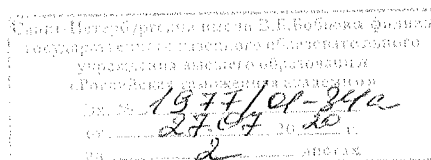 Санкт-Петербургский имени В.Б.Бобкова филиал
государственного казенного образовательного
учреждения высшего образования
«Российская таможенная академия»
Вх. № 1977/01-34а
от 27.07 2020 г.
на 2 листах